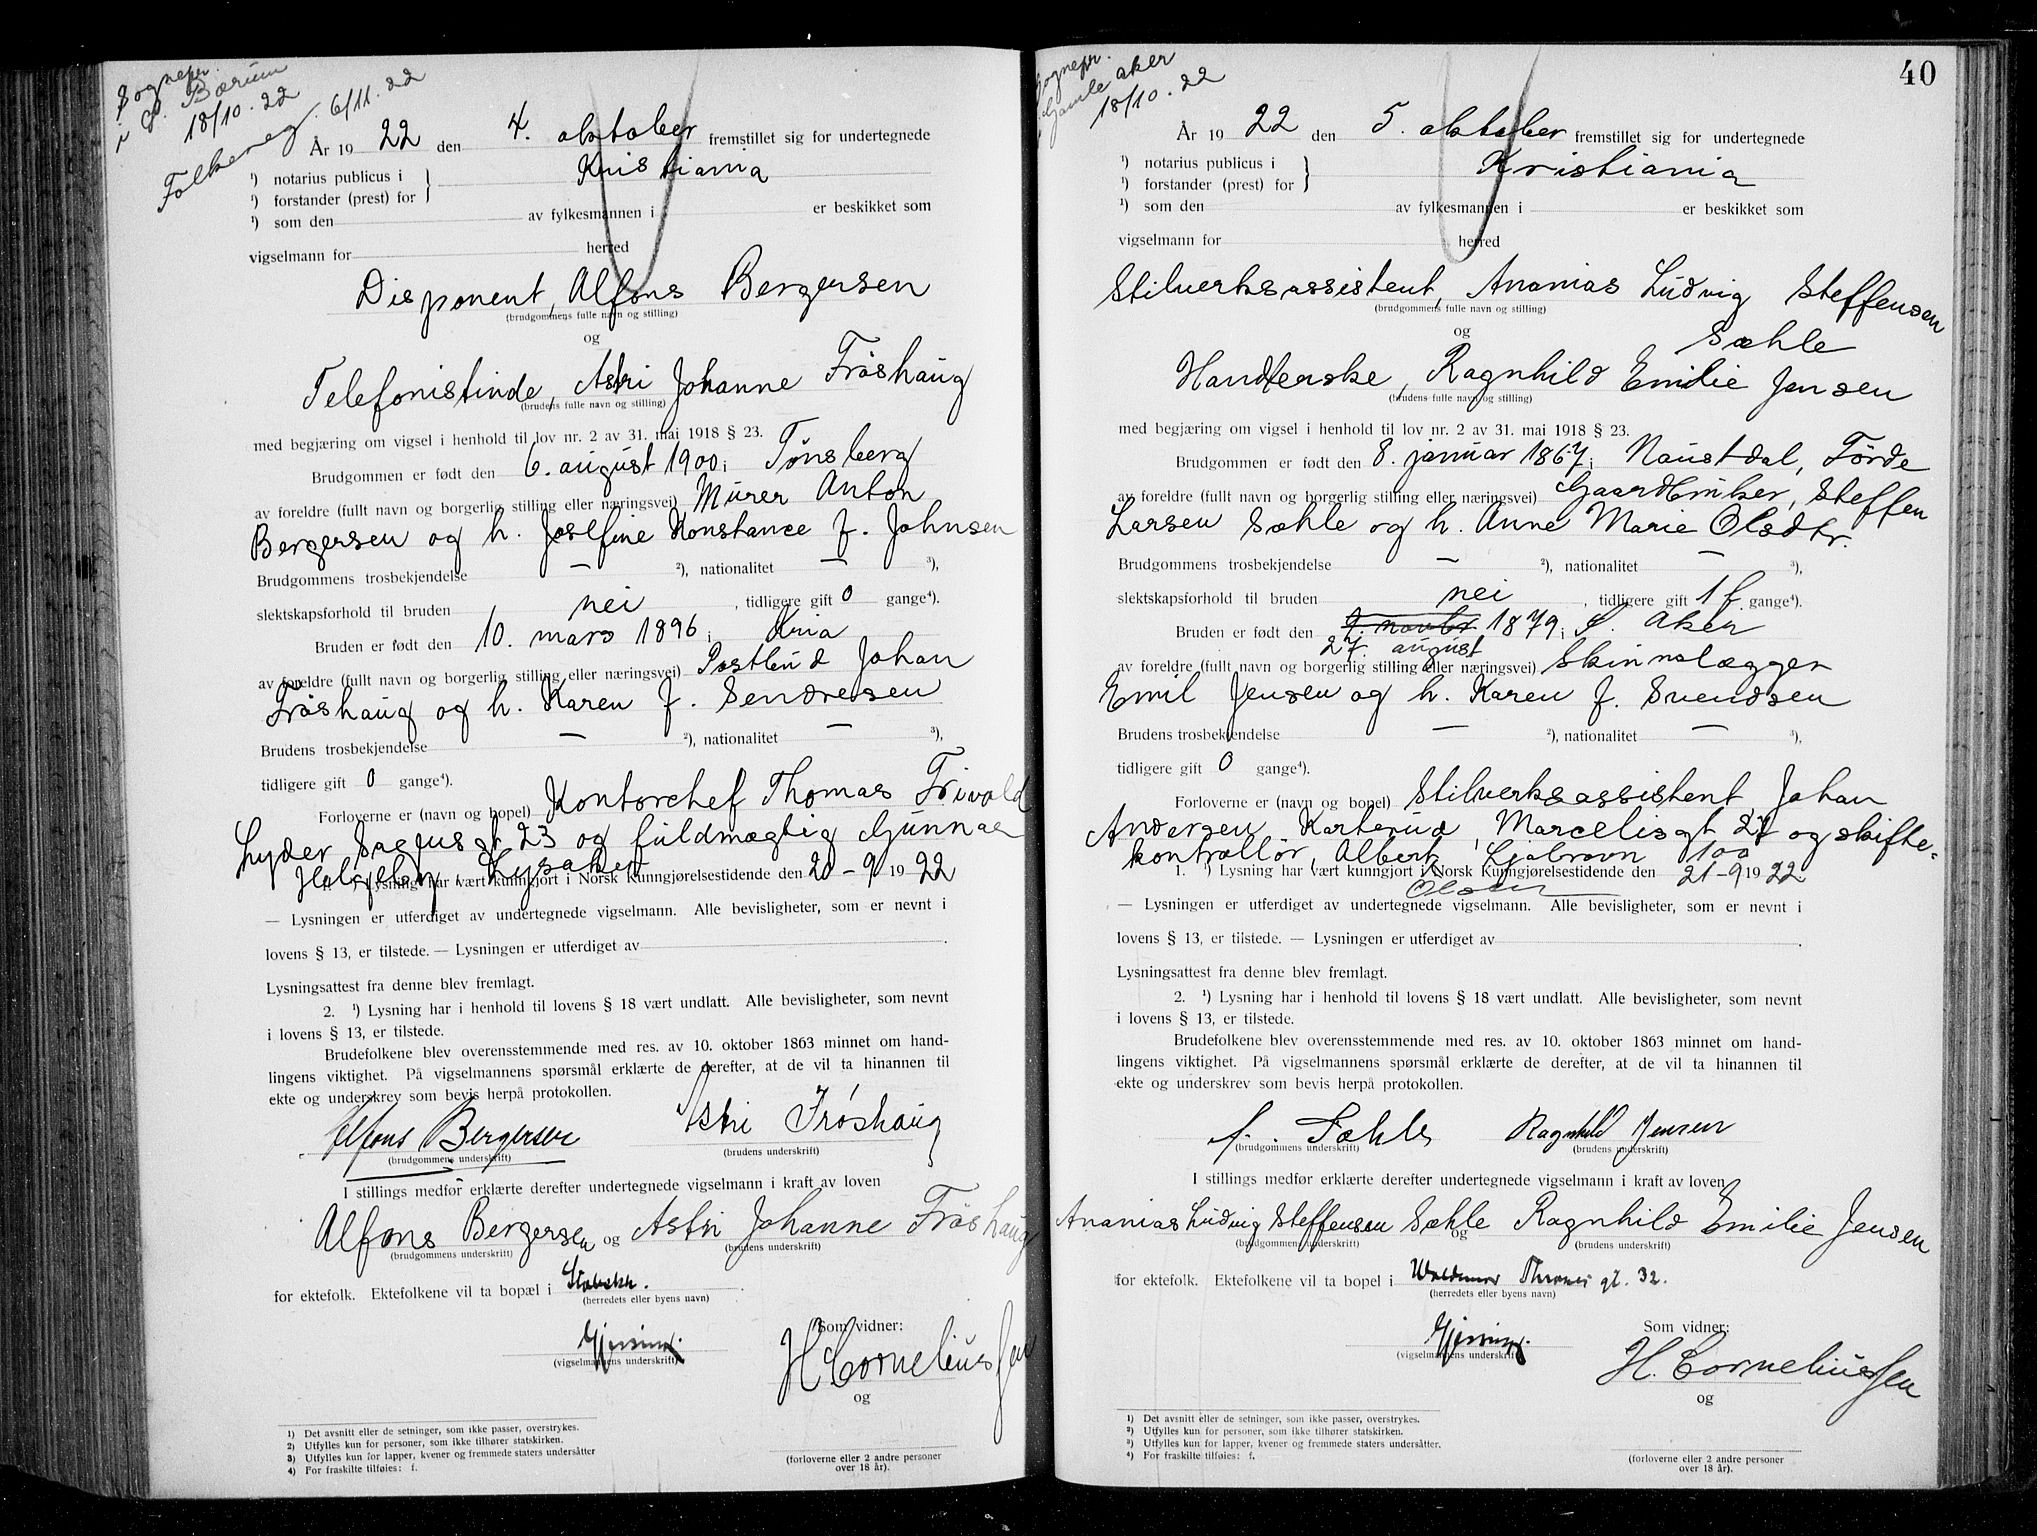 Sognepr.
i V. Bærum
18/10. 22
Folkereg. 6/11. 22
År 19 22 den 4. oktober fremstillet sig for undertegnede
¹) notarius publicus i
Kristiania
¹) forstander (prest) for
¹) som den av fylkesmannen i er beskikket som
vigselmann for herred
Disponent, Alfons Bergersen
(brudgommens fulle navn og stilling)
og
Telefonistinde, Astri Johanne Frøshaug
(brudens fulle navn og stilling)
med begjæring om vigsel i henhold til lov nr. 2 av 31. mai 1918 § 23.
Brudgommen er født den 6. august 1900; Tønsberg
av foreldre (fullt navn og borgerlig stilling eller næringsvei) Murer Anton
Bergersen og h. Josefine Konstance f. Johnsen
Brudgommens trosbekjendelse — ²), nationalitet — ³),
slektskapsforhold til bruden nei, tidligere gift 0 gange⁴).
Bruden er født den 10. mars 1896; Kria
av foreldre (fullt navn og borgerlig stilling eller næringsvei) Postbud Johan
Frøshaug og h. Karen f. Sendresen
Brudens trosbekjendelse — ²), nationalitet — ³),
tidligere gift 0 gange⁴).
Forloverne er (navn og bopel) Kontorchef Thomas Frivold
Lyder Sagensgt 23 og fuldmægtig Gunnar
Helgeby, Lysaker
1. ¹) Lysning har vært kunngjort i Norsk Kunngjørelsestidende den 20 – 9 19 22
— Lysningen er utferdiget av undertegnede vigselmann. Alle bevisligheter, som er nevnt i
lovens § 13, er tilstede. — Lysningen er utferdiget av
Lysningsattest fra denne blev fremlagt.
2. ¹) Lysning har i henhold til lovens § 18 vært undlatt. Alle bevisligheter, som nevnt
i lovens § 13, er tilstede.
Brudefolkene blev overensstemmende med res. av 10. oktober 1863 minnet om hand-
lingens viktighet. På vigselmannens spørsmål erklærte de derefter, at de vil ta hinannen til
ekte og underskrev som bevis herpå protokollen.
Alfons Bergersen Astri Frøshaug
(brudgommens underskrift) (brudens underskrift)
I stillings medfør erklærte derefter undertegnede vigselmann i kraft av loven
Alfons Bergersen og Astri Johanne Frøshaug
(brudgommens underskrift) (brudens underskrift)
for ektefolk. Ektefolkene vil ta bopæl i Stabekk.
(herredets eller byens navn)
Gjessing. Som vidner:
(vigselmannens underskrift)
H Corneliussen
og
¹) Det avsnitt eller de setninger, som ikke passer, overstrykes.
²) Utfylles kun for personer, som ikke tilhører statskirken.
³) Utfylles kun for lapper, kvener og fremmede staters undersåtter
⁴) For fraskilte tilføies: f.
(forloverne eller 2 andre personer
over 18 år).
40
Sognepr.
i Gamle aker
18/10. 22
År 19 22 den 5. oktober fremstillet sig for undertegnede
¹) notarius publicus i
Kristiania
¹) forstander (prest) for
¹) som den av fylkesmannen i er beskikket som
vigselmann for herred
Stilverksassistent, Ananias Ludvig Steffensen
(brudgommens fulle navn og stilling)
og
Sæhle
Handlerske, Ragnhild Emilie Jensen
(brudens fulle navn og stilling)
med begjæring om vigsel i henhold til lov nr. 2 av 31. mai 1918 § 23.
Brudgommen er født den 8. januar 1867; Naustdal, Førde
av foreldre (fullt navn og borgerlig stilling eller næringsvei) Gaardbruker, Steffen
Larsen Sæhle og h. Anne Marie Olsdtr.
Brudgommens trosbekjendelse — ²), nationalitet — ³),
slektskapsforhold til bruden nei, tidligere gift 1 f. gange⁴).
Bruden er født den 7. novbr 1879; V. Aker
27. august
av foreldre (fullt navn og borgerlig stilling eller næringsvei) Skinnslægger
Emil Jensen og h. Karen f. Svendsen
Brudens trosbekjendelse — ²), nationalitet — ³),
tidligere gift 0 gange⁴).
Forloverne er (navn og bopel) Stilverksassistent, Johan
Andersen Karterud, Marcelisgt 27 og skifte-
kontrollør, Albert Ljabrovn 100
1. ¹) Lysning har vært kunngjort i Norsk Kunngjørelsestidende den 21 – 9 19 22.
Olsen
— Lysningen er utferdiget av undertegnede vigselmann. Alle bevisligheter, som er nevnt i
lovens § 13, er tilstede. — Lysningen er utferdiget av
Lysningsattest fra denne blev fremlagt.
2. ¹) Lysning har i henhold til lovens § 18 vært undlatt. Alle bevisligheter, som nevnt
i lovens § 13, er tilstede.
Brudefolkene blev overensstemmende med res. av 10. oktober 1863 minnet om hand-
lingens viktighet. På vigselmannens spørsmål erklærte de derefter, at de vil ta hinannen til
ekte og underskrev som bevis herpå protokollen.
A. Sæhle Ragnhild Jensen
(brudgommens underskrift) (brudens underskrift)
I stillings medfør erklærte derefter undertegnede vigselmann i kraft av loven
Ananias Ludvig Steffensen Sæhle og Ragnhild Emilie Jensen
(brudgommens underskrift) (brudens underskrift)
for ektefolk. Ektefolkene vil ta bopel i Waldemar Thranes gt. 32.
(herredets eller byens navn)
Gjessing. Som vidner:
(vigselmannens underskrift)
H. Corneliussen
og
¹) Det avsnitt eller de setninger, som ikke passer, overstrykes.
²) Utfylles kun for personer, som ikke tilhører statskirken.
³) Utfylles kun for lapper, kvener og fremmede staters undersåtter.
⁴) For fraskilte tilføies: f.
(forloverne eller 2 andre personer
over 18 år).